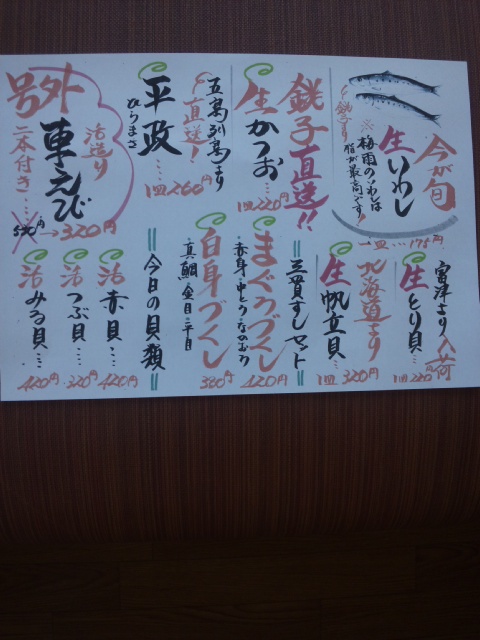 今が旬
生いわし
※梅雨のいわしは
脂が最高です!
一皿…175円
銚子直送!!
生かつお…
1皿220円
五島列島より
直送!
平政…
ひらまさ
1皿260円
号外
活造り
車えび
二本付き…
→320円
富津より入荷
生とり貝…
1皿220円
北海道より
生帆立貝…
1皿320円
三貫すしセット
まぐろづくし
赤身・中とろ・
420円
白身づくし
真鯛・金目・平目
380円
今日の貝類
活赤貝…
420円
活つぶ貝…
320円
活みる貝…
420円